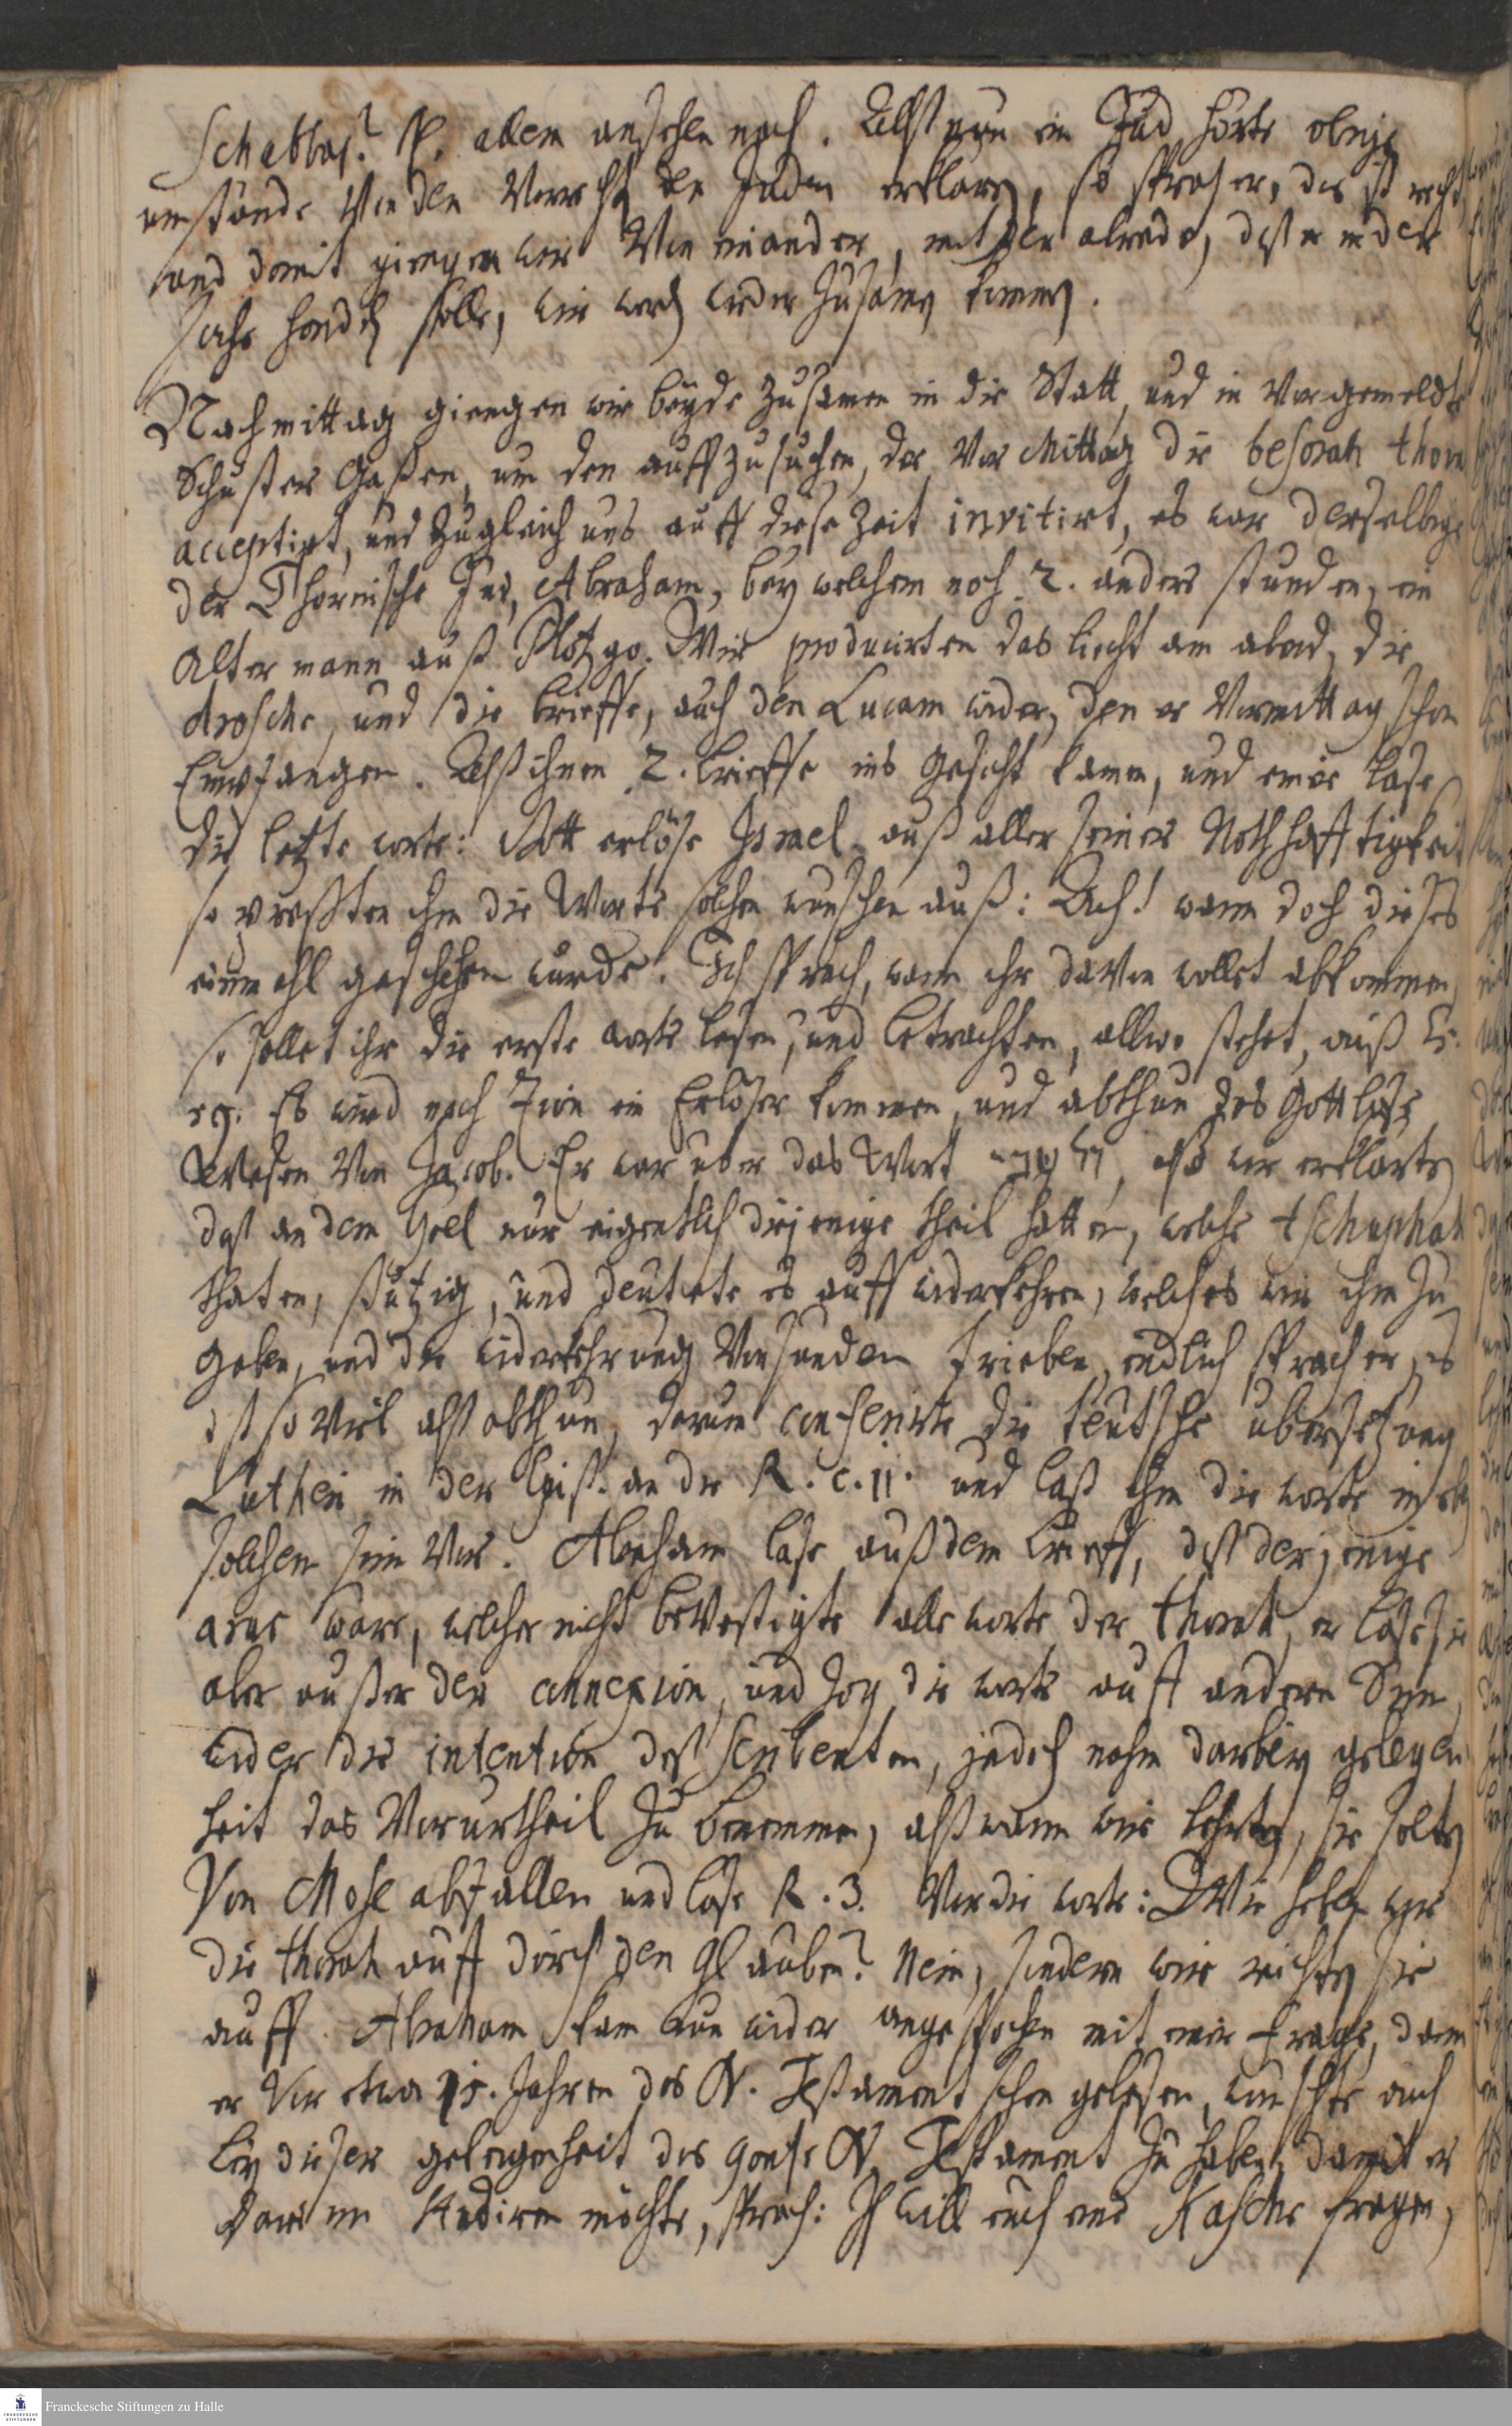 Schabbas? R. allem ansehen nach. Alß nun ein Jud hörte obige
umstände von den Vorrecht der Juden erklären, so sprach er, das ist recht,
und damit giengen wir Von einander, mit der abrede, daß er in der
sache handeln solle, wir werden wieder zusamen kommen.
Nachmittag giengen wir beyde zusamen in die Statt, und in Vorgemeldte
Schuster Gaßen, um den auffzusuchen, der Vor Mittag die besorah thora
acceptirt, und zugleich uns auff diese Zeit invitirt, es war derselbige
der Thornische Jud, Abraham, bey welchem noch 2. anders stunden, ein
alter mann auß Plotzgo. Wir producirten das liecht am abend, die
drosche, und die brieffe, auch den Lucam wider, den er Vormittag schon
Empfangen. Alß ihnen 2. brieffe ins gesicht kamen, und einer lase
die letzte worte: Gott erlöse Israel auß aller seiner Nothhafftigkeit
so presten ihm die Worte solchen wunschen auß: Ach! wann doch dieses
einmahl geschehen wurde! Ich sprach, wann ihr davon wollet abkommen,
so sollet ihr die erste worte lesen, und betrachten, allwo stehet, auß Es.
59. Es wird nach Zion ein Erlöser kommen, und abthun das Gottlose
Wesen Von Jacob. Er war uber das Wort, alß wir erklärten
daß an dem Goel nur eigentlich diejenige theil hatten, welche tschuphah
thaten, stutzig, und deutete es auff widerkehren, welches wir ihm zu
gaben, und die widerkehrung Von sunden trieben, endlich sprach er, es
ist so viel alß abthun, darum conferirte die teutsche ubersetzung
Lutheri in der Epist. an die R. c. 11. und laß ihm die worte in eben
solchen sinn Vor. Abraham lase auß dem brieff, daß derjenige
arur ware, welcher nicht bevestigte alle worte der thorah, er lase sie
aber außer der connexion, und zog die worte auff andern Sinn,
wider die intention deß scribenten, jedoch nahm darbey gelegen
heit das Vorurtheil zu benemmen, alß wann wir lehrten, sie solten
Von Mose abfallen und lase R. 3. Vor die worte: Wie heben wir
die thorah auff durch den Glauben? Nein, sondern wir richten sie
auff. Abraham kam nun wider angestochen mit einer frage, dann
er Vor etwa 15. Jahren das N. Testament schon gelesen, wunschte auch
bey dieser gelegenheit das ganze N. Testament zu haben, damit er
darinn studiren möchte, sprach: Ich will euch eine Kasche fragen,
Franckesche Stiftungen zu Halle